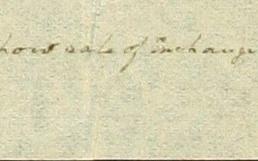 how rate of Exchange